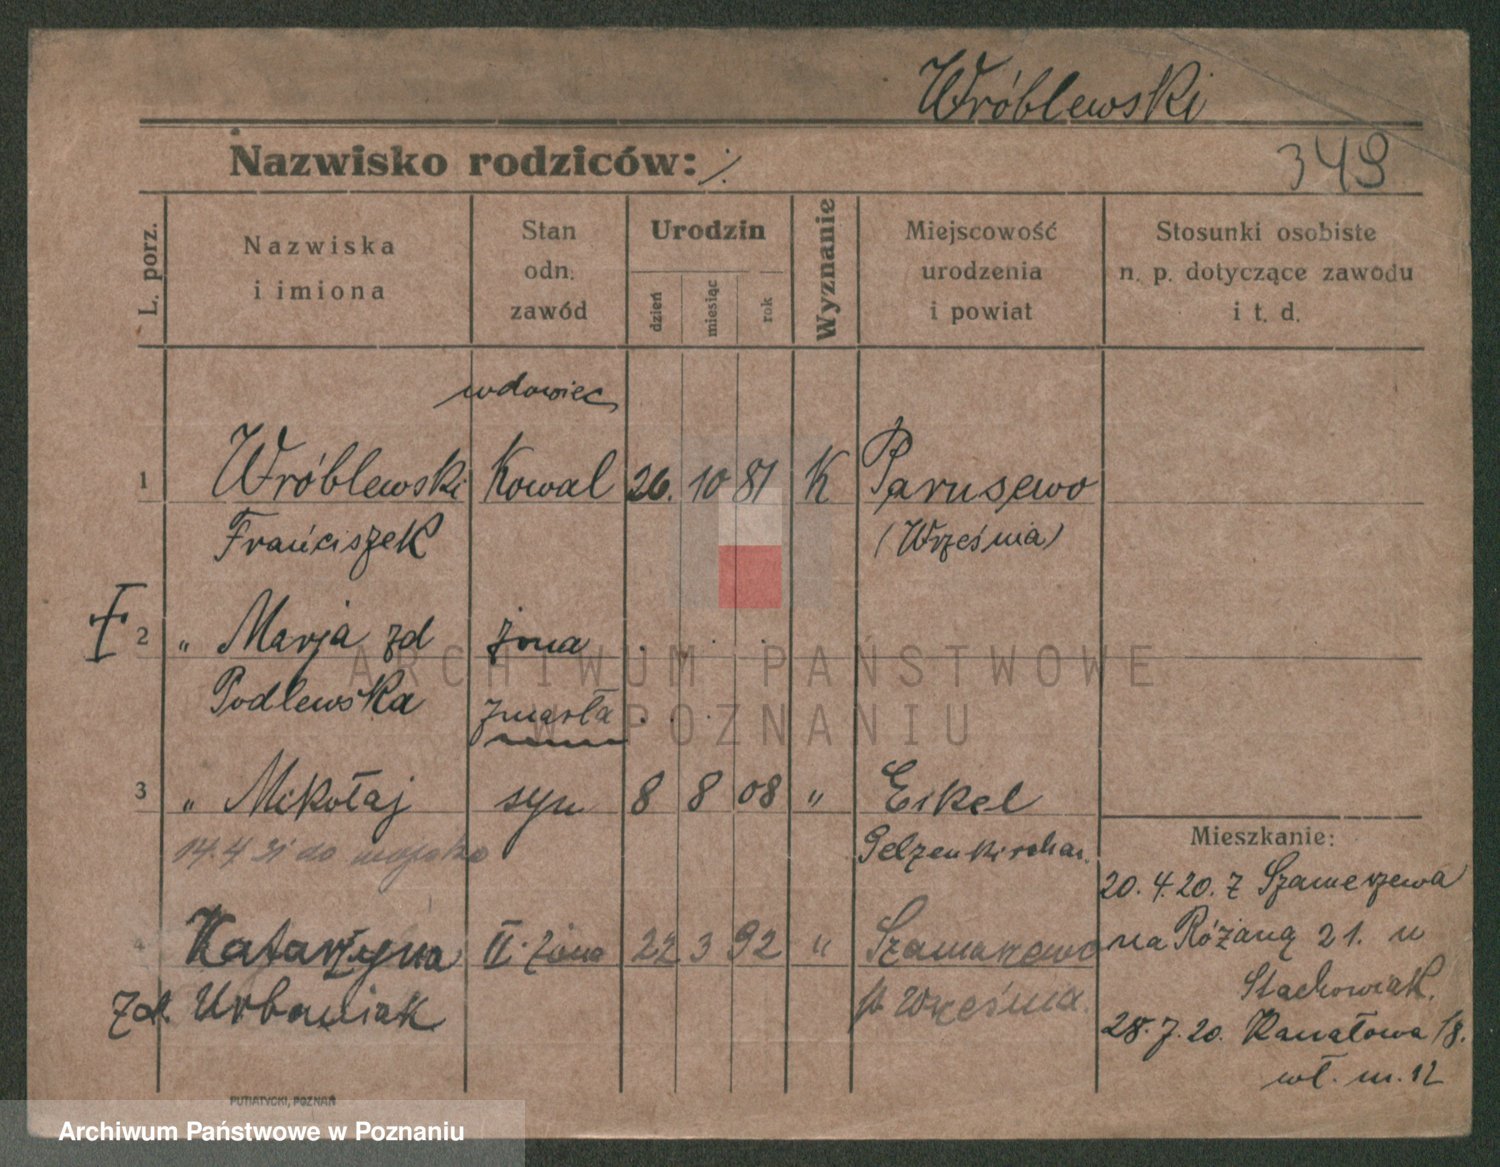 Wróblewski
Nazwisko rodziców: ./.
349
L. porz.
Nazwiska
i imiona
Stan
odn.
zawód
Urodzin
dzień
miesiąc
rok
Wyznanie
Miejscowość
urodzenia
i powiat
Stosunki osobiste
n. p. dotyczące zawodu
i t. d.
wdowiec
1 Wróblewski Kowal 26. 10 81 K Parusewo
Franciszek (Września)
2 " Marja zd żona . . .
Podlewska zmarła . . .
3 " Mikołaj syn 8 8 08 " Eikel
14.4 31 do wojska Gelzenkirchen.
4 Katarzyna II. żona 22 3 92 " Szamarzewo
zd. Urbaniak p. Września.
Mieszkanie:
20. 4. 20. z Szamerzewa
na Różaną 21. u
Stachowiak.
28. 7. 20. Kanałowa 18.
wł. m. 12
PUTIATYCKI, POZNAŃ
ARCHIWUM PAŃSTWOWE
W POZNANIU
Archiwum Państwowe w Poznaniu